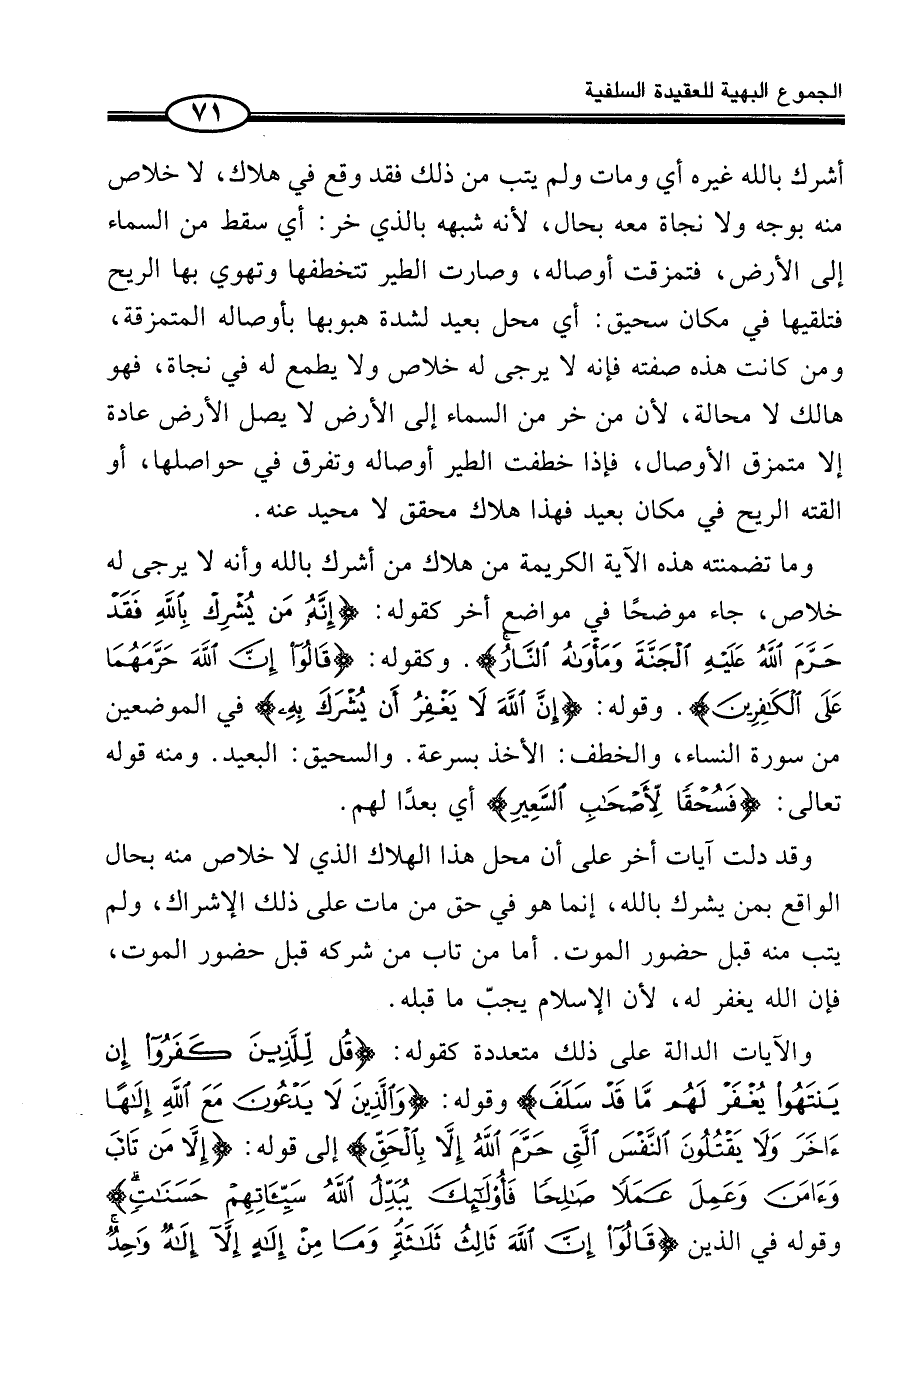 الجموع البهية للعقيدة السلفية
٧١
أشرك بالله غيره أي ومات ولم يتب من ذلك فقد وقع في هلاك، لا خلاص
منه بوجه ولا نجاة معه بحال، لأنه شبهه بالذي خر: أي سقط من السماء
إلى الأرض، فتمزقت أوصاله، وصارت الطير تتخطفها وتهوي بها الريح
فتلقيها في مكان سحيق: أي محل بعيد لشدة هبوبها بأوصاله المتمزقة،
ومن كانت هذه صفته فإنه لا يرجى له خلاص ولا يطمع له في نجاة، فهو
هالك لا محالة، لأن من خر من السماء إلى الأرض لا يصل الأرض عادة
إلا متمزق الأوصال، فإذا خطفت الطير أوصاله وتفرق في حواصلها، أو
القته الريح في مكان بعيد فهذا هلاك محقق لا محيد عنه.
وما تضمنته هذه الآية الكريمة من هلاك من أشرك بالله وأنه لا يرجى له
خلاص، جاء موضحًا في مواضع أخر كقوله: ﴿إِنَّهُۥ مَن يُشْرِكْ بِٱللَّهِ فَقَدْ
حَرَّمَ ٱللَّهُ عَلَيْهِ ٱلْجَنَّةَ وَمَأْوَىٰهُ ٱلنَّارُ﴾. وكقوله: ﴿قَالُوٓا۟ إِنَّ ٱللَّهَ حَرَّمَهُمَا
عَلَى ٱلْكَٰفِرِينَ﴾. وقوله: ﴿إِنَّ ٱللَّهَ لَا يَغْفِرُ أَن يُشْرَكَ بِهِۦ﴾ في الموضعين
من سورة النساء، والخطف: الأخذ بسرعة. والسحيق: البعيد. ومنه قوله
تعالى: ﴿فَسُحْقًا لِّأَصْحَٰبِ ٱلسَّعِيرِ﴾ أي بعدًا لهم.
وقد دلت آيات أخر على أن محل هذا الهلاك الذي لا خلاص منه بحال
الواقع بمن يشرك بالله، إنما هو في حق من مات على ذلك الإشراك، ولم
يتب منه قبل حضور الموت. أما من تاب من شركه قبل حضور الموت،
فإن الله يغفر له، لأن الإسلام يجبّ ما قبله.
والآيات الدالة على ذلك متعددة كقوله: ﴿قُل لِّلَّذِينَ كَفَرُوٓا۟ إِن
يَنتَهُوا۟ يُغْفَرْ لَهُم مَّا قَدْ سَلَفَ﴾ وقوله: ﴿وَٱلَّذِينَ لَا يَدْعُونَ مَعَ ٱللَّهِ إِلَٰهًا
ءَاخَرَ وَلَا يَقْتُلُونَ ٱلنَّفْسَ ٱلَّتِى حَرَّمَ ٱللَّهُ إِلَّا بِٱلْحَقِّ﴾ إلى قوله: ﴿إِلَّا مَن تَابَ
وَءَامَنَ وَعَمِلَ عَمَلًا صَٰلِحًا فَأُو۟لَٰٓئِكَ يُبَدِّلُ ٱللَّهُ سَيِّـَٔاتِهِمْ حَسَنَٰتٍ﴾
وقوله في الذين ﴿قَالُوٓا۟ إِنَّ ٱللَّهَ ثَالِثُ ثَلَٰثَةٍ وَمَا مِنْ إِلَٰهٍ إِلَّآ إِلَٰهٌ وَٰحِدٌ